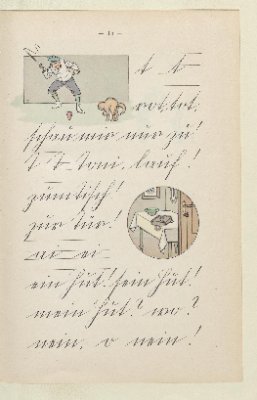 — 11 —
t t
rot, tot,
schau mir nur zu!
T T Toni, lauf!
zum tisch!
zur tür!
ai ei
ein hut! sein hut!
mein hut? wo?
nein, o nein!